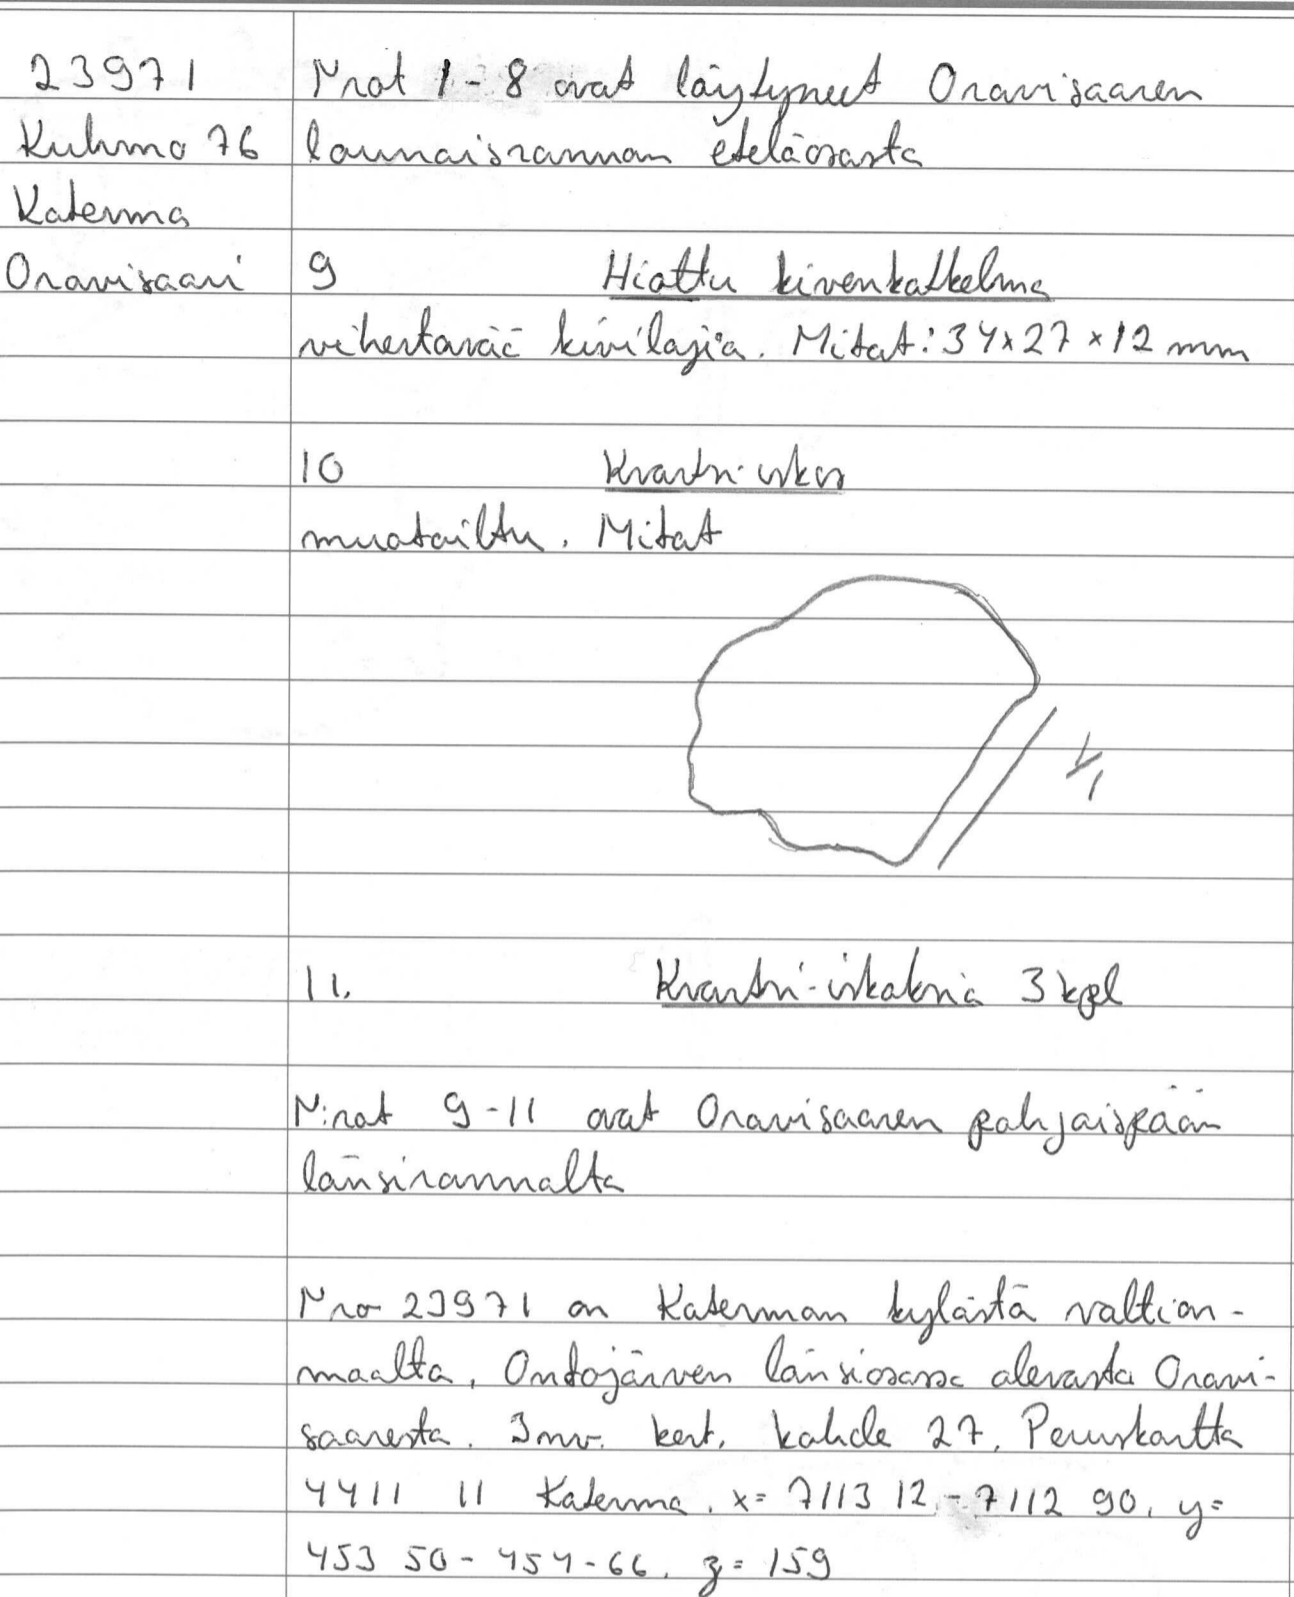 23971
Kuhmo 76
Katerma
Oravisaari
Nrot 1-8 ovat löytyneet Oravisaaren
lounaisrannan eteläosasta
9 Hiottu kivenkatkelma
vihertävää kivilajia. Mitat: 34x27x12 mm
10 Kvartsi-iskos
muotoiltu. Mitat
1/1
11. Kvartsi-iskoksia 3 kpl
N:rot 9-11 ovat Oravisaaren pohjoispään
länsirannalta
Nro 23971 on Katerman kylästä valtion-
maalta, Ontojärven länsiosassa olevasta Oravi-
saaresta. Inv. kert. kohde 27. Peruskartta
4411 11 Katerma. x= 7113 12 - 7112 90, y=
453 50 - 454-66. z= 159